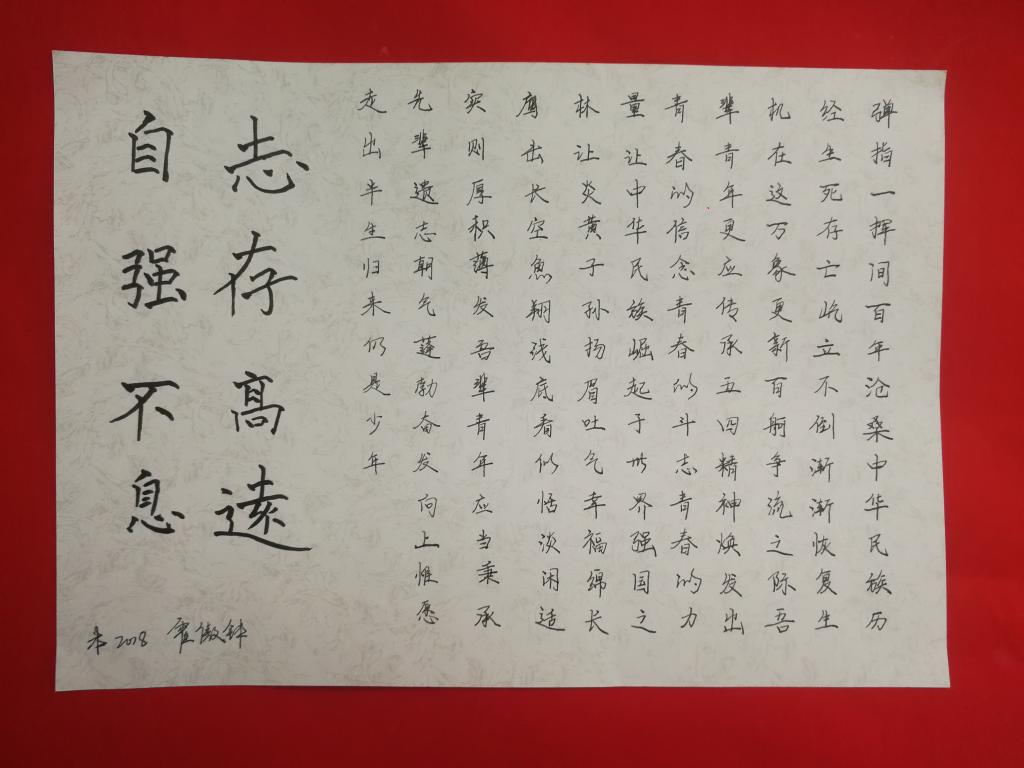 弹指一挥间百年沧桑中华民族历
经生死存亡屹立不倒渐渐恢复生
机在这万象更新百舸争流之际吾
辈青年更应传承五四精神焕发出
青春的信念青春的斗志青春的力
量让中华民族崛起于世界强国之
林让炎黄子孙扬眉吐气幸福绵长
鹰击长空鱼翔浅底看似恬淡闲适
实则厚积薄发吾辈青年应当秉承
先辈遗志朝气蓬勃奋发向上惟愿
走出半生归来仍是少年
志存高远
自强不息
2018 霍傲钟